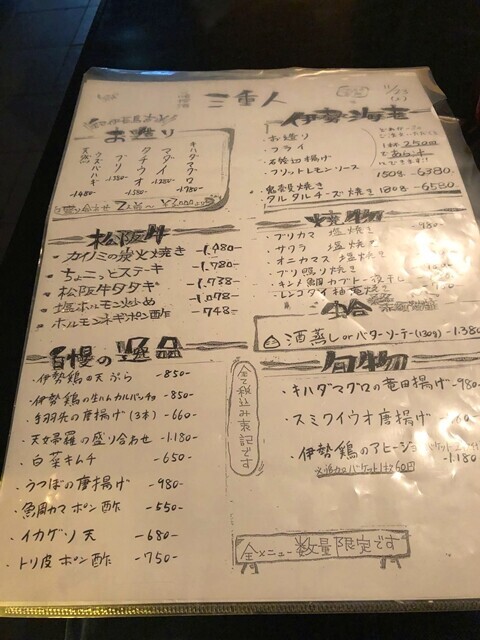 三重人
お造り
天然カスバハギ
ブリ
タチウオ
マダイ
キハダマグロ
-1480-
-1380-
-1780-
伊勢海老
・お造り
・フライ
・石焼切揚げ
・フリットレモンソース
150g -6380-
・鬼殻焼き
・タルタルチーズ焼き 180g -6580-
1杯250円
できます!!
松阪牛
・カイノミの炭火焼き -1,980-
・ちょこっとステーキ -1,780-
・松阪牛タタキ -1,738-
・塩ホルモン炒め -1,078-
・ホルモンネギポン酢 -748-
焼物
・ブリカマ 塩焼き -980-
・サワラ 塩焼き
・オニカマス 塩焼き
・ブリ照り焼き
・キンメ鯛カブト一夜干し
・レンコダイ柚庵焼き
酒蒸し or バターソーテー(130g) -1,380
自慢の逸品
・伊勢鶏の天ぷら -850-
・伊勢鶏の生ハムカルパッチョ -850-
・手羽先の唐揚げ(3本) -660-
・天女帚羅の盛り合わせ -1,180-
・白菜キムチ -650-
・うつぼの唐揚げ -980-
・魚間カマポン酢 -550-
・イカゲソ天 -680-
・トリ皮ポン酢 -750-
全て税込み表記です
旬物
・キハダマグロの竜田揚げ -980-
・スミクイウオ唐揚げ
・伊勢鶏のアヒージョ
-1,180
※追加バケット1ヶ60円
全メニュー数量限定です